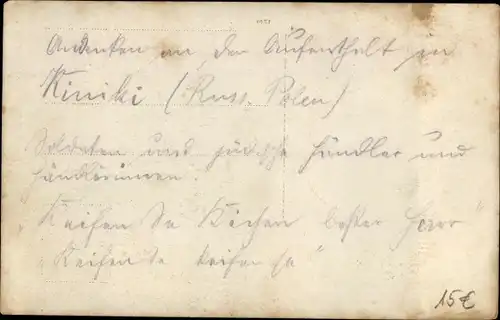 Andenken an den Aufenthalt in
Kiniki (Russ. Polen)
Soldaten und jüdische Händler und
Händlerinnen.
"Keifen Se Kichen bester Herr"
"Keifen Se keifen se"
15€